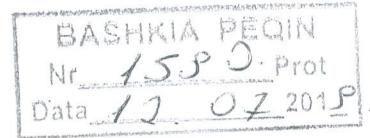 BASHKIA PEQIN
Nr. 1580. Prot
Data 12. 07 2018.